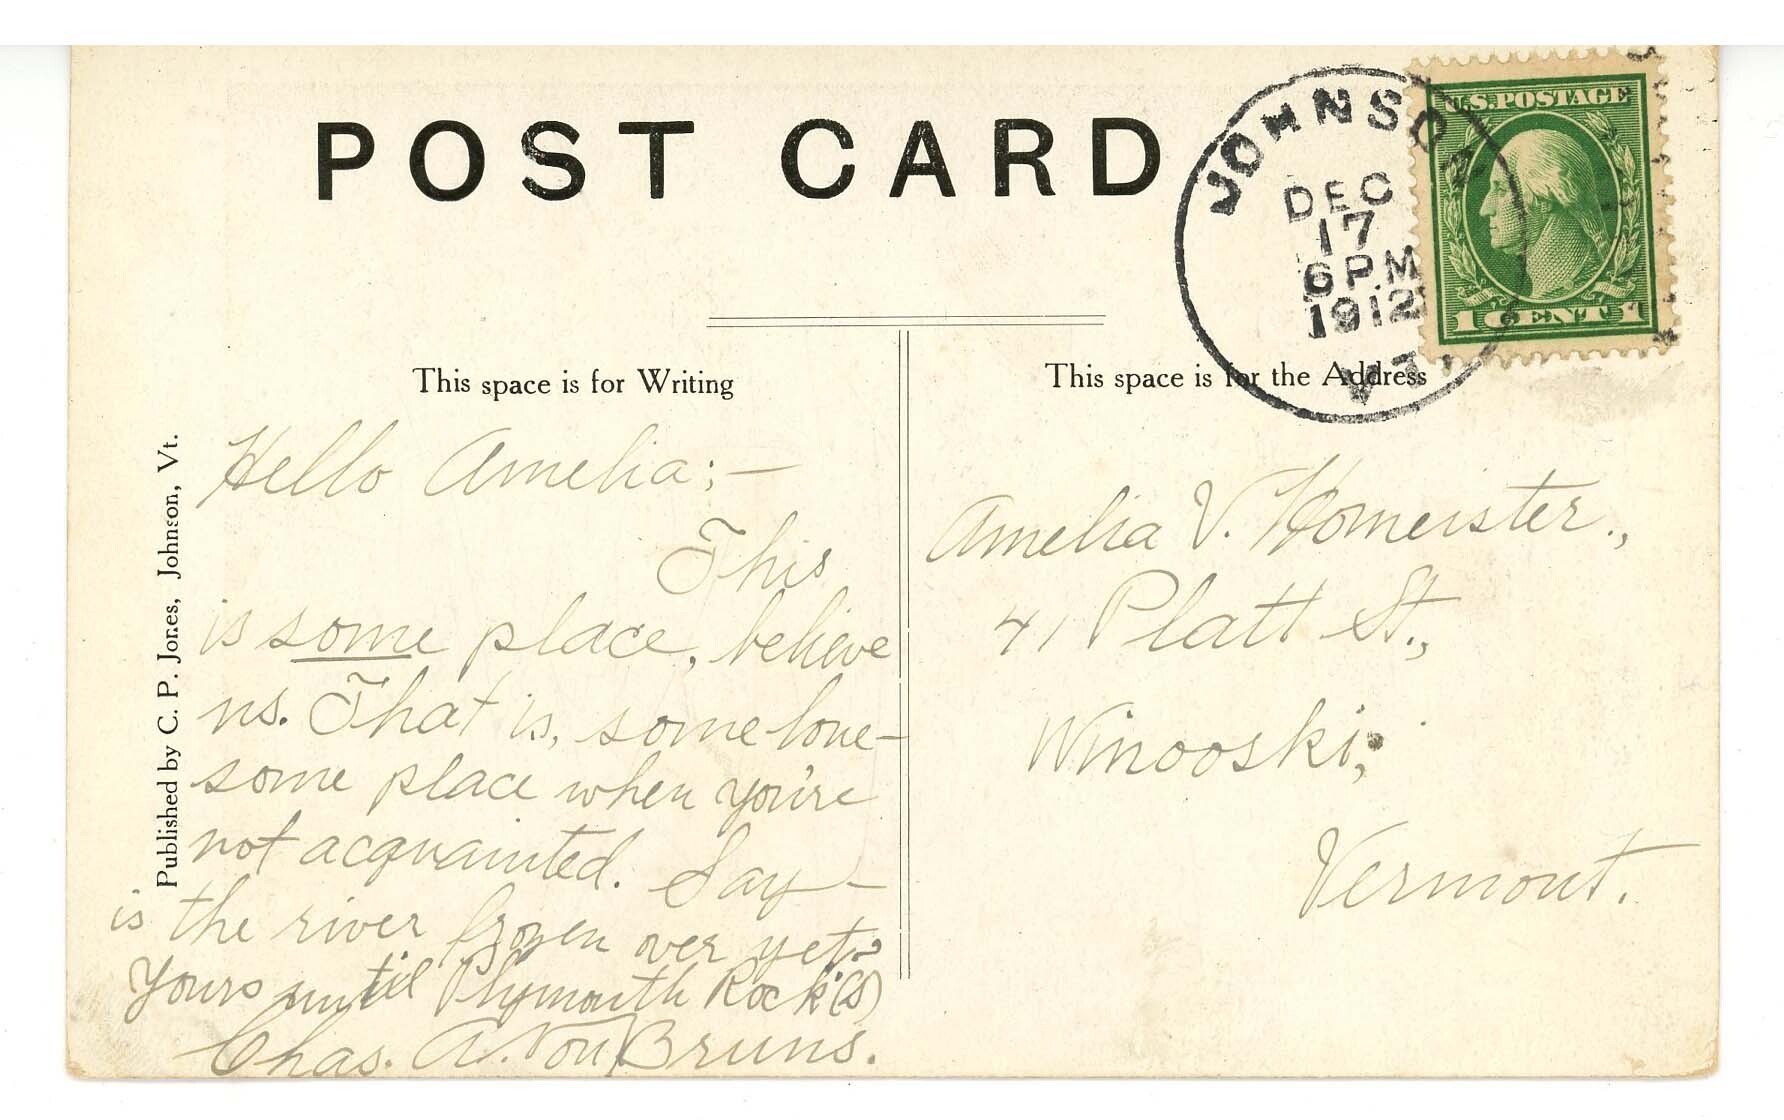 POST CARD
JOHNSON
DEC
17
6 PM
1912
VT.
U.S. POSTAGE
1 CENT 1
This space is for Writing
This space is for the Address
Published by C. P. Jones, Johnson, Vt.
Hello Amelia;—
This
is some place, believe
us. That is, some lone-
some place when you're
not acquainted. Say—
is the river frozen over yet?
Yours until Plymouth Rock(s)
Chas. A. Von Bruns.
Amelia V. Homeister.,
41 Platt St.,
Winooski,
Vermont.